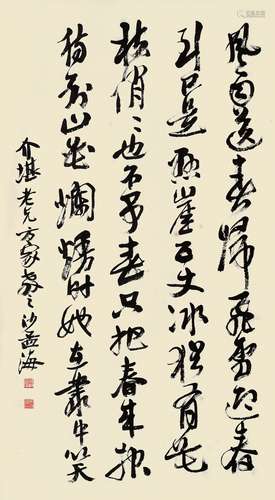 风雨送春归飞雪迎春
到已是悬崖百丈冰犹有花
枝俏俏也不争春只把春来报
待到山花烂熳时她在丛中笑
介堪老兄方家教之沙孟海